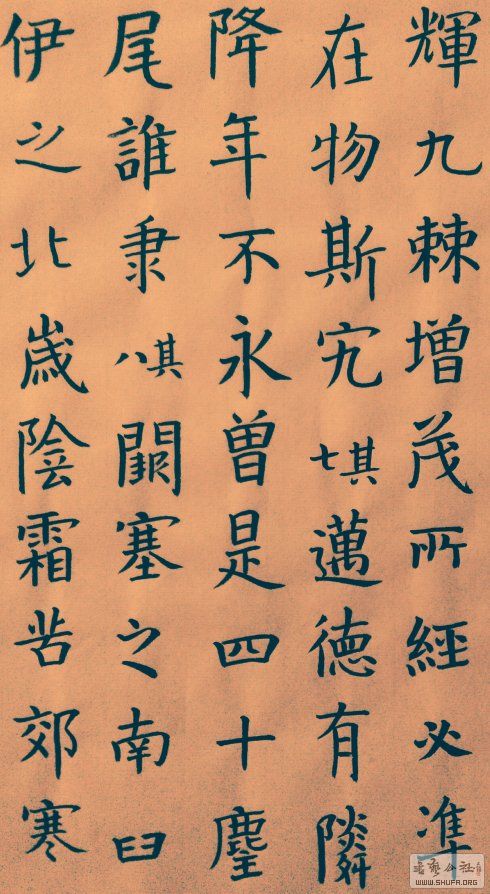 輝九棘增茂所經必準
在物斯宄其七邁德有隣
降年不永曾是四十
尾誰隶其八闕塞之南臼
伊之北歲陰霜苦郊寒
書法公社
WWW.SHUFA.ORG